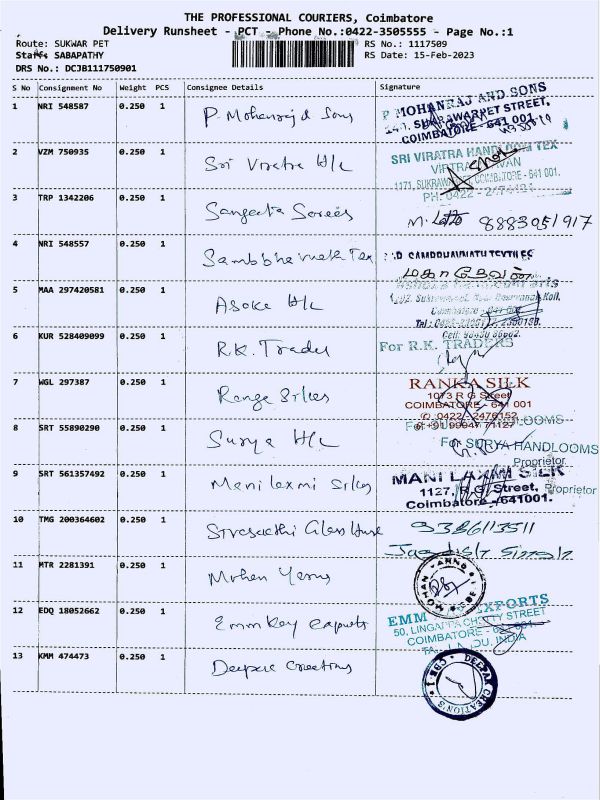 THE PROFESSIONAL COURIERS, Coimbatore
Delivery Runsheet - PCT - Phone No.:0422-3505555 - Page No.:1
Route: SUKWAR PET
RS No.: 1117509
Staff: SABAPATHY
RS Date: 15-Feb-2023
DRS No.: DCJB111750901
S No Consignment No Weight PCS Consignee Details Signature
1 NRI 548587 0.250 1 P. Mohanraj & Sons
P MOHANRAJ AND SONS
241, SUKRAWARPET STREET,
COIMBATORE - 641 001
2 VZM 750935 0.250 1 Sri Viratra H/L
SRI VIRATRA HANDLOOM TEX
COIMBATORE - 641 001.
PH: 0422 -
3 TRP 1342206 0.250 1 Sangeeta Sarees
8883051917
4 NRI 548557 0.250 1 Sambbhavnath Tex
SAMBBHAVNATH TEXTILES
5 MAA 297420581 0.250 1 Asoka H/L
6 KUR 528409099 0.250 1 R.K. Trader
For R.K. TRADERS
7 WGL 297387 0.250 1 Ranga Silks
RANKA SILK
1073 R G Street
COIMBATORE - 641 001
0422 - 2476152
+91 99947 71127
8 SRT 55890290 0.250 1 Surya H/L
For SURYA HANDLOOMS
Proprietor
9 SRT 561357492 0.250 1 Mani laxmi Silks
MANI LAXMI SILK
1127, R.G. Street,
Proprietor
Coimbatore - 641001.
10 TMG 200364602 0.250 1 Glass House
9386113511
11 MTR 2281391 0.250 1 Mohan Yarns
MOHAN YARNS
12 EDQ 18052662 0.250 1 Emm Kay Exports
EMM EXPORTS
50, LINGAPPA CHETTY STREET
COIMBATORE - 641 001.
INDIA
13 KMM 474473 0.250 1 Deepak Creations
DEEPAK CREATION'S
CBE-1